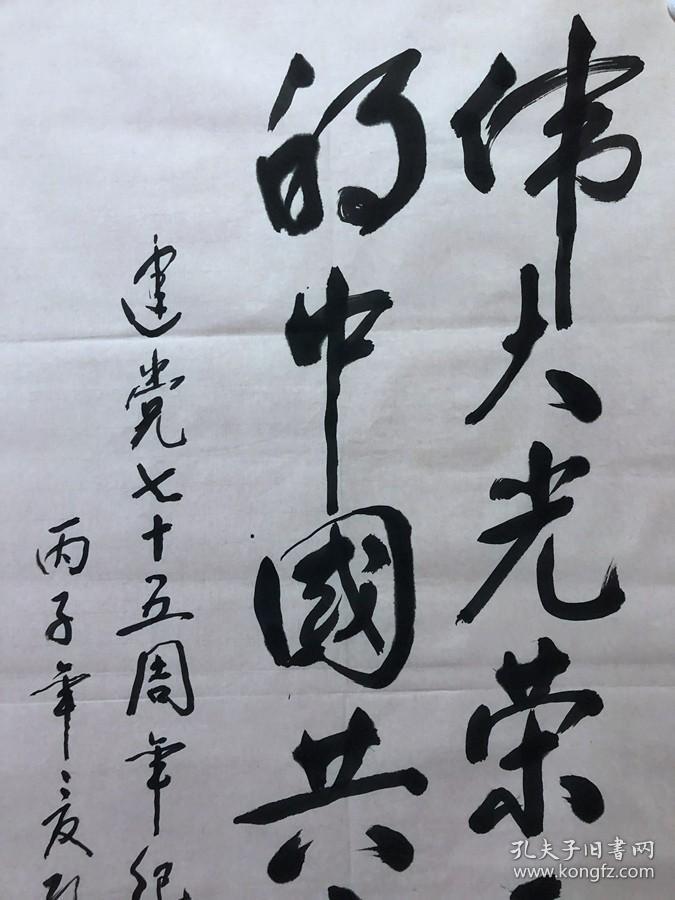 伟大光荣
的中國共
建党七十五周年纪
丙子年夏
孔夫子旧书网
www.kongfz.com